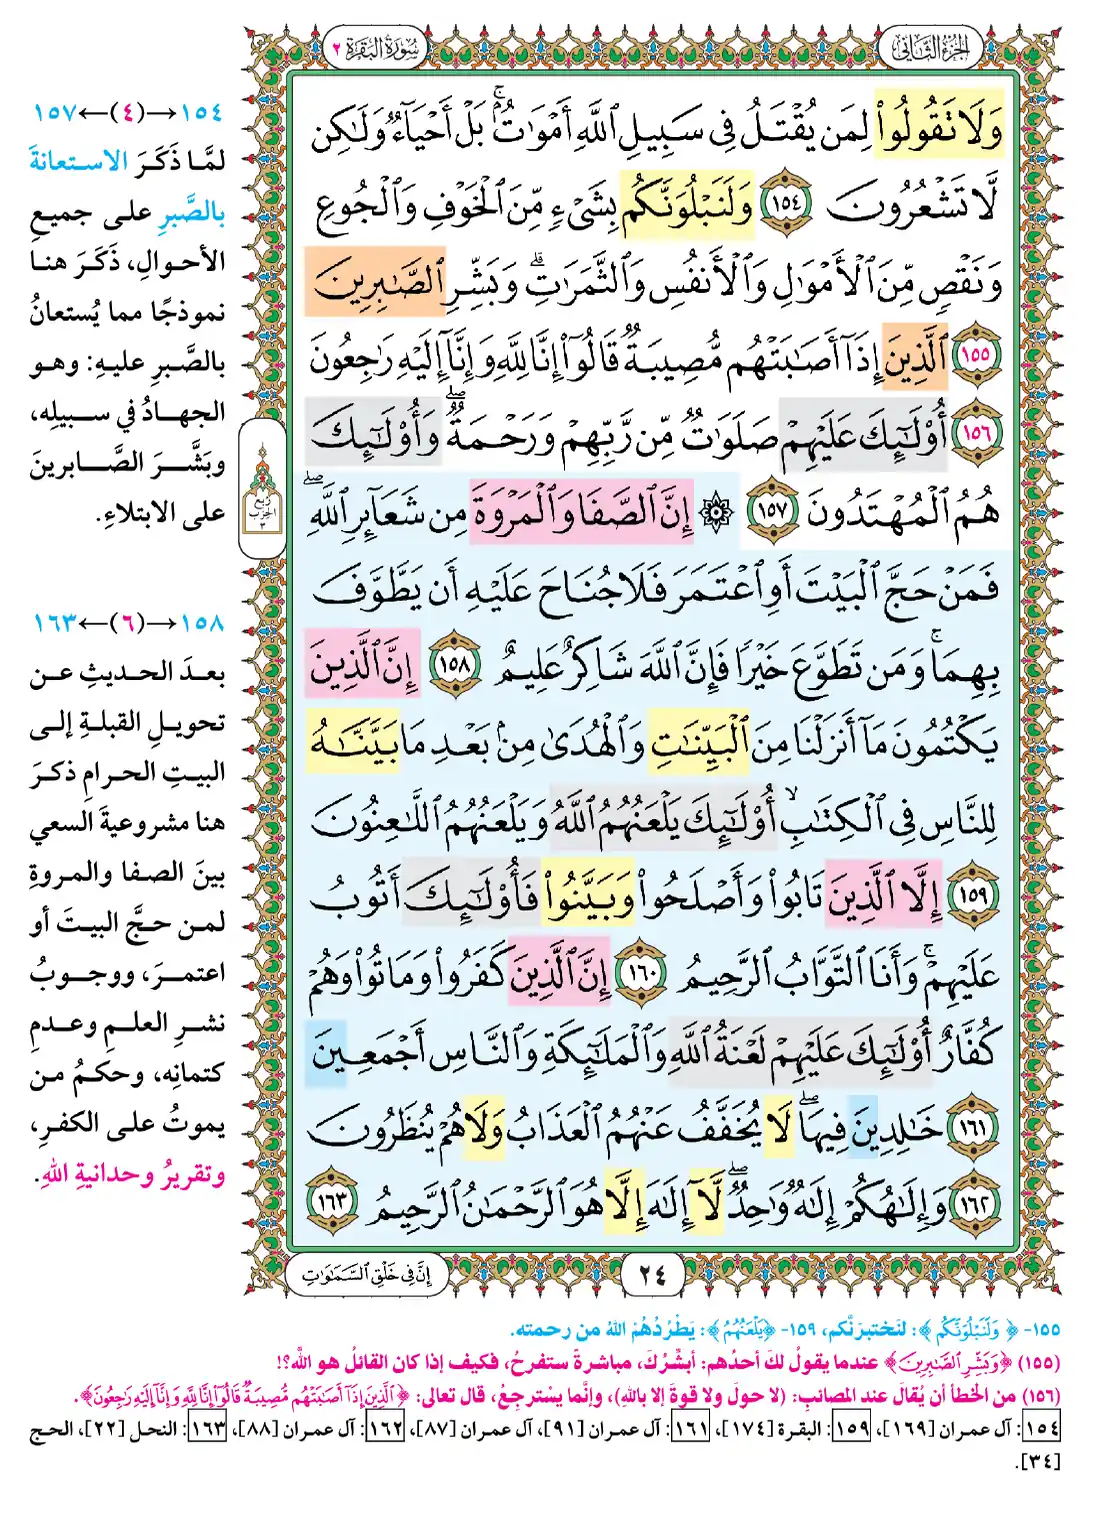 الجزء الثاني
سورة البقرة ٢
وَلَا تَقُولُوا۟ لِمَن يُقْتَلُ فِى سَبِيلِ ٱللَّهِ أَمْوَٰتٌۢ ۚ بَلْ أَحْيَآءٌ وَلَـٰكِن
لَّا تَشْعُرُونَ ١٥٤ وَلَنَبْلُوَنَّكُم بِشَىْءٍ مِّنَ ٱلْخَوْفِ وَٱلْجُوعِ
وَنَقْصٍ مِّنَ ٱلْأَمْوَٰلِ وَٱلْأَنفُسِ وَٱلثَّمَرَٰتِ ۗ وَبَشِّرِ ٱلصَّـٰبِرِينَ
١٥٥ ٱلَّذِينَ إِذَآ أَصَـٰبَتْهُم مُّصِيبَةٌ قَالُوٓا۟ إِنَّا لِلَّهِ وَإِنَّآ إِلَيْهِ رَٰجِعُونَ
١٥٦ أُو۟لَـٰٓئِكَ عَلَيْهِمْ صَلَوَٰتٌ مِّن رَّبِّهِمْ وَرَحْمَةٌ ۖ وَأُو۟لَـٰٓئِكَ
هُمُ ٱلْمُهْتَدُونَ ١٥٧ ۞ إِنَّ ٱلصَّفَا وَٱلْمَرْوَةَ مِن شَعَآئِرِ ٱللَّهِ ۖ
فَمَنْ حَجَّ ٱلْبَيْتَ أَوِ ٱعْتَمَرَ فَلَا جُنَاحَ عَلَيْهِ أَن يَطَّوَّفَ
بِهِمَا ۚ وَمَن تَطَوَّعَ خَيْرًا فَإِنَّ ٱللَّهَ شَاكِرٌ عَلِيمٌ ١٥٨ إِنَّ ٱلَّذِينَ
يَكْتُمُونَ مَآ أَنزَلْنَا مِنَ ٱلْبَيِّنَـٰتِ وَٱلْهُدَىٰ مِنۢ بَعْدِ مَا بَيَّنَّـٰهُ
لِلنَّاسِ فِى ٱلْكِتَـٰبِ ۙ أُو۟لَـٰٓئِكَ يَلْعَنُهُمُ ٱللَّهُ وَيَلْعَنُهُمُ ٱللَّـٰعِنُونَ
١٥٩ إِلَّا ٱلَّذِينَ تَابُوا۟ وَأَصْلَحُوا۟ وَبَيَّنُوا۟ فَأُو۟لَـٰٓئِكَ أَتُوبُ
عَلَيْهِمْ ۚ وَأَنَا ٱلتَّوَّابُ ٱلرَّحِيمُ ١٦٠ إِنَّ ٱلَّذِينَ كَفَرُوا۟ وَمَاتُوا۟ وَهُمْ
كُفَّارٌ أُو۟لَـٰٓئِكَ عَلَيْهِمْ لَعْنَةُ ٱللَّهِ وَٱلْمَلَـٰٓئِكَةِ وَٱلنَّاسِ أَجْمَعِينَ
١٦١ خَـٰلِدِينَ فِيهَا ۖ لَا يُخَفَّفُ عَنْهُمُ ٱلْعَذَابُ وَلَا هُمْ يُنظَرُونَ
١٦٢ وَإِلَـٰهُكُمْ إِلَـٰهٌ وَٰحِدٌ ۖ لَّآ إِلَـٰهَ إِلَّا هُوَ ٱلرَّحْمَـٰنُ ٱلرَّحِيمُ ١٦٣
٢٤
إِنَّ فِى خَلْقِ ٱلسَّمَـٰوَٰتِ
ربع
الحزب
٣
١٥٤→(٤)←١٥٧
لمَّا ذَكَرَ الاستعانةَ
بالصَّبرِ على جميعِ
الأحوالِ، ذَكَرَ هنا
نموذجًا مما يُستعانُ
بالصَّبرِ عليهِ: وهو
الجهادُ في سبيلِه،
وبَشَّرَ الصَّابرينَ
على الابتلاءِ.
١٥٨→(٦)←١٦٣
بعدَ الحديثِ عن
تحويلِ القبلةِ إلى
البيتِ الحرامِ ذكرَ
هنا مشروعيةَ السعي
بينَ الصفا والمروةِ
لمن حجَّ البيتَ أو
اعتمرَ، ووجوبُ
نشرِ العلمِ وعدمِ
كتمانِه، وحكمُ من
يموتُ على الكفرِ،
وتقريرُ وحدانيةِ اللهِ.
١٥٥- ﴿وَلَنَبْلُوَنَّكُم﴾: لنَختبرَنَّكم، ١٥٩- ﴿يَلْعَنُهُمُ﴾: يَطْرُدُهُمُ اللهُ من رحمته.
(١٥٥) ﴿وَبَشِّرِ ٱلصَّـٰبِرِينَ﴾ عندما يقولُ لكَ أحدُهم: أبشِّرُكَ، مباشرةً ستفرحُ، فكيف إذا كان القائلُ هو اللهَ؟!
(١٥٦) من الخطأ أن يُقالَ عند المصائب: (لا حولَ ولا قوةَ إلا باللهِ)، وإنَّما يسْترجِعُ، قال تعالى: ﴿ٱلَّذِينَ إِذَآ أَصَـٰبَتْهُم مُّصِيبَةٌ قَالُوٓا۟ إِنَّا لِلَّهِ وَإِنَّآ إِلَيْهِ رَٰجِعُونَ﴾.
١٥٤: آل عمران [١٦٩]، ١٥٩: البقرة [١٧٤]، ١٦١: آل عمران [٩١]، آل عمران [٨٧]، ١٦٢: آل عمران [٨٨]، ١٦٣: النحل [٢٢]، الحج
[٣٤].